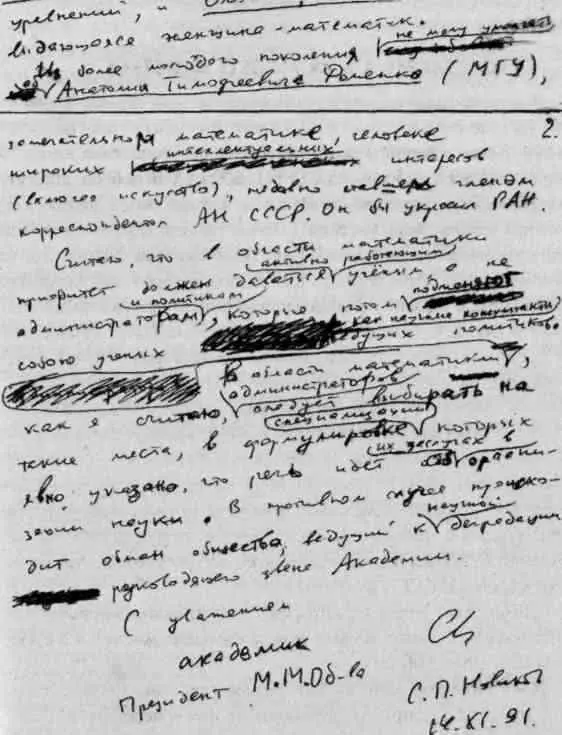 уравнений, и
выдающаяся женщина-математик.
Из более молодого поколения не могу умолчать
Анатолия Тимофеевича Фоменко (МГУ),
2.
замечательном математике человеке
широких интеллектуальных интересов
(включая искусство), недавно членом
корреспондентом АН СССР. Он бы украсил РАН.
Считаю что в области математики
активно работающим
приоритет должен даваться учёным, а не
и политикам
администраторам, которые потом подменяют
собою ученых как научные консультанты
ведущих политиков.
В области математики,
администраторов
как я считаю, следует выбирать на
специализации
такие места, в формулировке которых
их заслугах в
явно указано, что речь идет об организации
зации науки. В противном случае происхо-
научной
дит обман общества, ведущий к деградации
руководящего звена Академии.
С уважением
академик
Президент М.М.Об-ва
С.П. Новиков
14.XI.91.